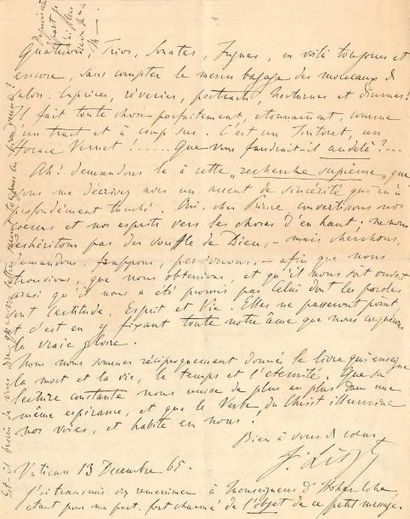 Quatuors, Trios, Sonates, Fugues, en voilà toujours et
encore, sans compter le menu bagage des morceaux de
salon. Caprices, rêveries, portraits, Nocturnes et
Il fait toute chose parfaitement, étonnamment, comme
un trait et à coup sûr. C'est un Tintoret, un
Horace Vernet! ..... Que vous faudrait-il au delà? ...
Ah! demandons le à cette "recherche suprême" que
vous me décrivez avec un accent de sincérité qui m'a
profondément touché! Oui, cher Prince convertissons nos
cœurs et nos esprits vers les choses d'en haut; ne nous
déshéritons pas du souffle de Dieu, - mais cherchons,
demandons, frappons, persévérons, - afin que nous
trouvions, que nous obtenions et qu'il nous soit ouvert
ainsi qu'il nous a été promis par Celui dont les paroles
sont certitude, Esprit et Vie. Elles ne passeront point,
et c'est en y fixant toute notre âme que nous
la vraie gloire.
Nous nous sommes réciproquement donné le livre qui enseigne
la mort et la vie, le temps et l'éternité. Que sa
lecture constante nous unisse de plus en plus dans une
même espérance, et que le Verbe du Christ illumine
nos voies, et habite en nous.
Bien à vous de cœur,
F. Liszt
Vatican 13 Decembre 65.
J'ai transmis vos remerciemens à Monseigneur d'Hohenlohe
étant pour ma part, fort charmé de l'objet de ce petit message.